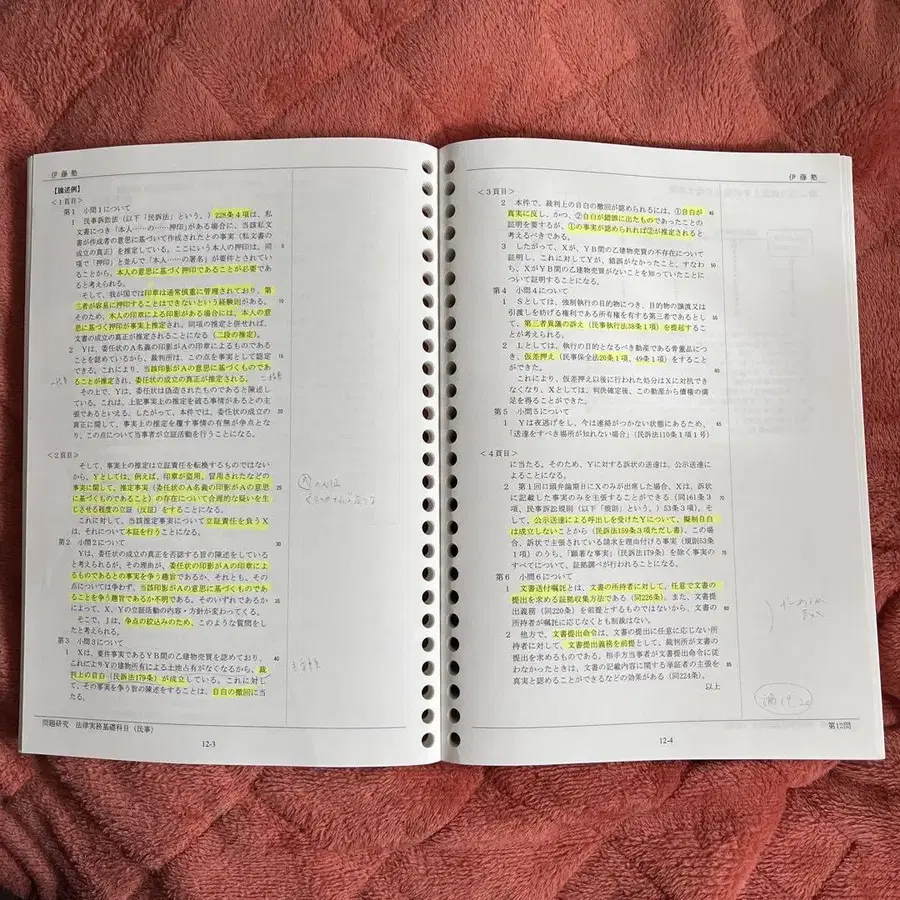 伊藤塾
【論述例】
<1頁目>
第1 小問1について
1 民事訴訟法(以下「民訴法」という。)228条4項は、私
文書につき「本人……の……押印」がある場合に、当該私文
書が作成者の意思に基づいて作成されたとの事実(私文書
の成立の真正)を推定している。ここにいう本人の押印は、同 5
項で「押印」と並んで「本人……の署名」が要件とされてい
ることから、本人の意思に基づく押印であることが必要であ
ると考えられる。
そして、我が国では印章は通常慎重に管理されており、第
三者が容易に押印することはできないという経験則がある。 10
そのため、本人の印章による印影がある場合には、本人の意
思に基づく押印が事実上推定され、同項の推定と併せれば、
文書の成立の真正が推定されることになる(二段の推定)。
2 Yは、委任状のA名義の印影がAの印章によるものである
ことを認めているから、裁判所は、この点を事実として認定 15
できる。これにより、当該印影がAの意思に基づくものであ
ることが推定され、委任状の成立の真正が推定される。
その上で、Yは、委任状は偽造されたものであると陳述し
ている。これは、上記事実上の推定を破る事情があるとの主
張であるといえる。したがって、本件では、委任状の成立の 20
真正に関して、事実上の推定を覆す事情の有無が争点とな
り、この点について当事者が立証活動を行うことになる。
<2頁目>
そして、事実上の推定は立証責任を転換するものではない
から、Yとしては、例えば、印章が盗用、冒用されたなどの
事実に関して、推定事実(委任状のA名義の印影がAの意思 25
に基づくものであること)の存在について合理的な疑いを生
じさせる程度の立証(反証)をすることになる。
これに対して、当該推定事実について立証責任を負うX
は、それについて本証を行うことになる。
第2 小問2について 30
Yは、委任状の成立の真正を否認する旨の陳述をしている
と考えられるが、その理由が、委任状の印影がAの印章によ
るものであるとの事実を争う趣旨であるか、それとも、その
点については争わず、当該印影がAの意思に基づくものであ
ることを争う趣旨であるか不明である。そのいずれであるか 35
によって、X、Yの立証活動の内容・方針が変わってくる。
そこで、Jは、争点の絞込みのため、このような質問をし
たと考えられる。
第3 小問3について
1 Xは、要件事実であるYB間の乙建物売買を認めており、 40
これによりYの建物所有による土地占有がなくなるから、裁
判上の自白(民訴法179条)が成立している。これに対し
て、その事実を争う旨の陳述をすることは、自白の撤回に当
たる。
問題研究 法律実務基礎科目(民事)
12-3
伊藤塾
<3頁目>
2 本件で、裁判上の自白の撤回が認められるには、①自白が 45
真実に反し、かつ、②自白が錯誤に出たものであったことの
証明を要するが、①の事実が認められれば②が推定されると
考えるべきである。
3 したがって、Xが、YB間の乙建物売買の不存在について
証明し、これに対してYが、錯誤がなかったこと、すなわ 50
ち、XがYB間の乙建物売買がないことを知っていたことに
ついて証明することになる。
第4 小問4について
1 Sとしては、強制執行の目的物につき、目的物の譲渡又は
引渡しを妨げる権利である所有権を有する第三者であるとし 55
て、第三者異議の訴え(民事執行法38条1項)を提起するこ
とが考えられる。
2 Lとしては、執行の目的となるべき動産である常薫品につ
き、仮差押え(民事保全法20条1項、49条1項)をすること
ができた。 60
これにより、仮差押え以後に行われた処分はXに対抗でき
なくなり、Xとしては、判決確定後、この動産から債権の満
足を得ることができた。
第5 小問5について
1 Yは夜逃げをし、今は連絡がつかない状態にあるため、 65
「送達をすべき場所が知れない場合」(民訴法110条1項1号)
<4頁目>
に当たる。そのため、Yに対する訴状の送達は、公示送達に
よることになる。
2 第1回口頭弁論期日にXのみが出席した場合、Xは、訴状
に記載した事実のみを主張することができる(同161条3 70
項、民事訴訟規則(以下「規則」という。)53条3項)。そ
して、公示送達による呼出しを受けたYについて、擬制自白
は成立しないことから(民訴法159条3項ただし書)、この場
合、訴状で主張されている請求を理由付ける事実(規則53条
1項)のうち、「顕著な事実」(民訴法179条)を除く事実の 75
すべてについて、証拠調べが行われることになる。
第6 小問6について
1 文書送付嘱託とは、文書の所持者に対して、任意で文書の
提出を求める証拠収集方法である(同226条)。また、文書
提出義務(同220条)を前提とするものではないから、文書の 80
所持者が嘱託に応じなくとも制裁はない。
2 他方で、文書提出命令は、文書の提出に任意に応じない所
持者に対して、文書提出義務を前提として、裁判所が文書の
提出を求めるものである。相手方当事者が文書提出命令に従
わなかったときは、文書の記載内容に関する挙証者の主張を 85
真実と認めることができるなどの効果がある(同224条)。
以上
第12問
12-4